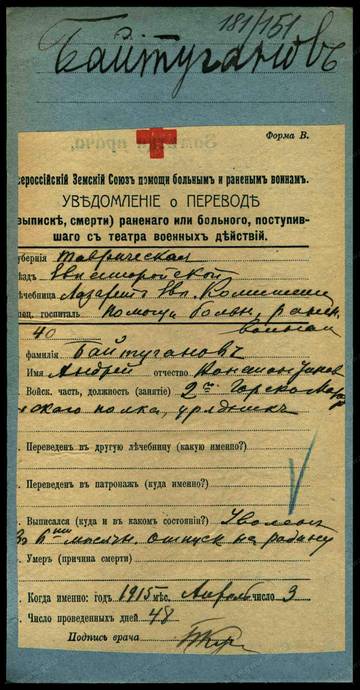 181/151
Байтугановъ
Форма В.
Всероссійскій Земскій Союзъ помощи больнымъ и раненымъ воинамъ.
УВѢДОМЛЕНІЕ О ПЕРЕВОДѢ
(выпискѣ, смерти) раненаго или больного, поступив-
шаго съ театра военныхъ дѣйствій.
губернія Таврическая
ѣздъ Евпаторійской
лѣчебница Лазаретъ Евп.
пец. госпиталь помощи больн. ранен.
40 воинам
фамилія Байтугановъ
Имя Андрей отчество
Войск. часть, должность (занятіе) 2й Горско-Мозд
полка, урядникъ
Переведенъ въ другую лѣчебницу (какую именно?)
Переведенъ въ патронажъ (куда именно?)
Выписался (куда и въ какомъ состояніи?) Уволенъ
отпускъ на родину
Умеръ (причина смерти)
Когда именно: годъ 1915 мѣс. Апрѣль число 3
Число проведенныхъ дней 48
Подпись врача